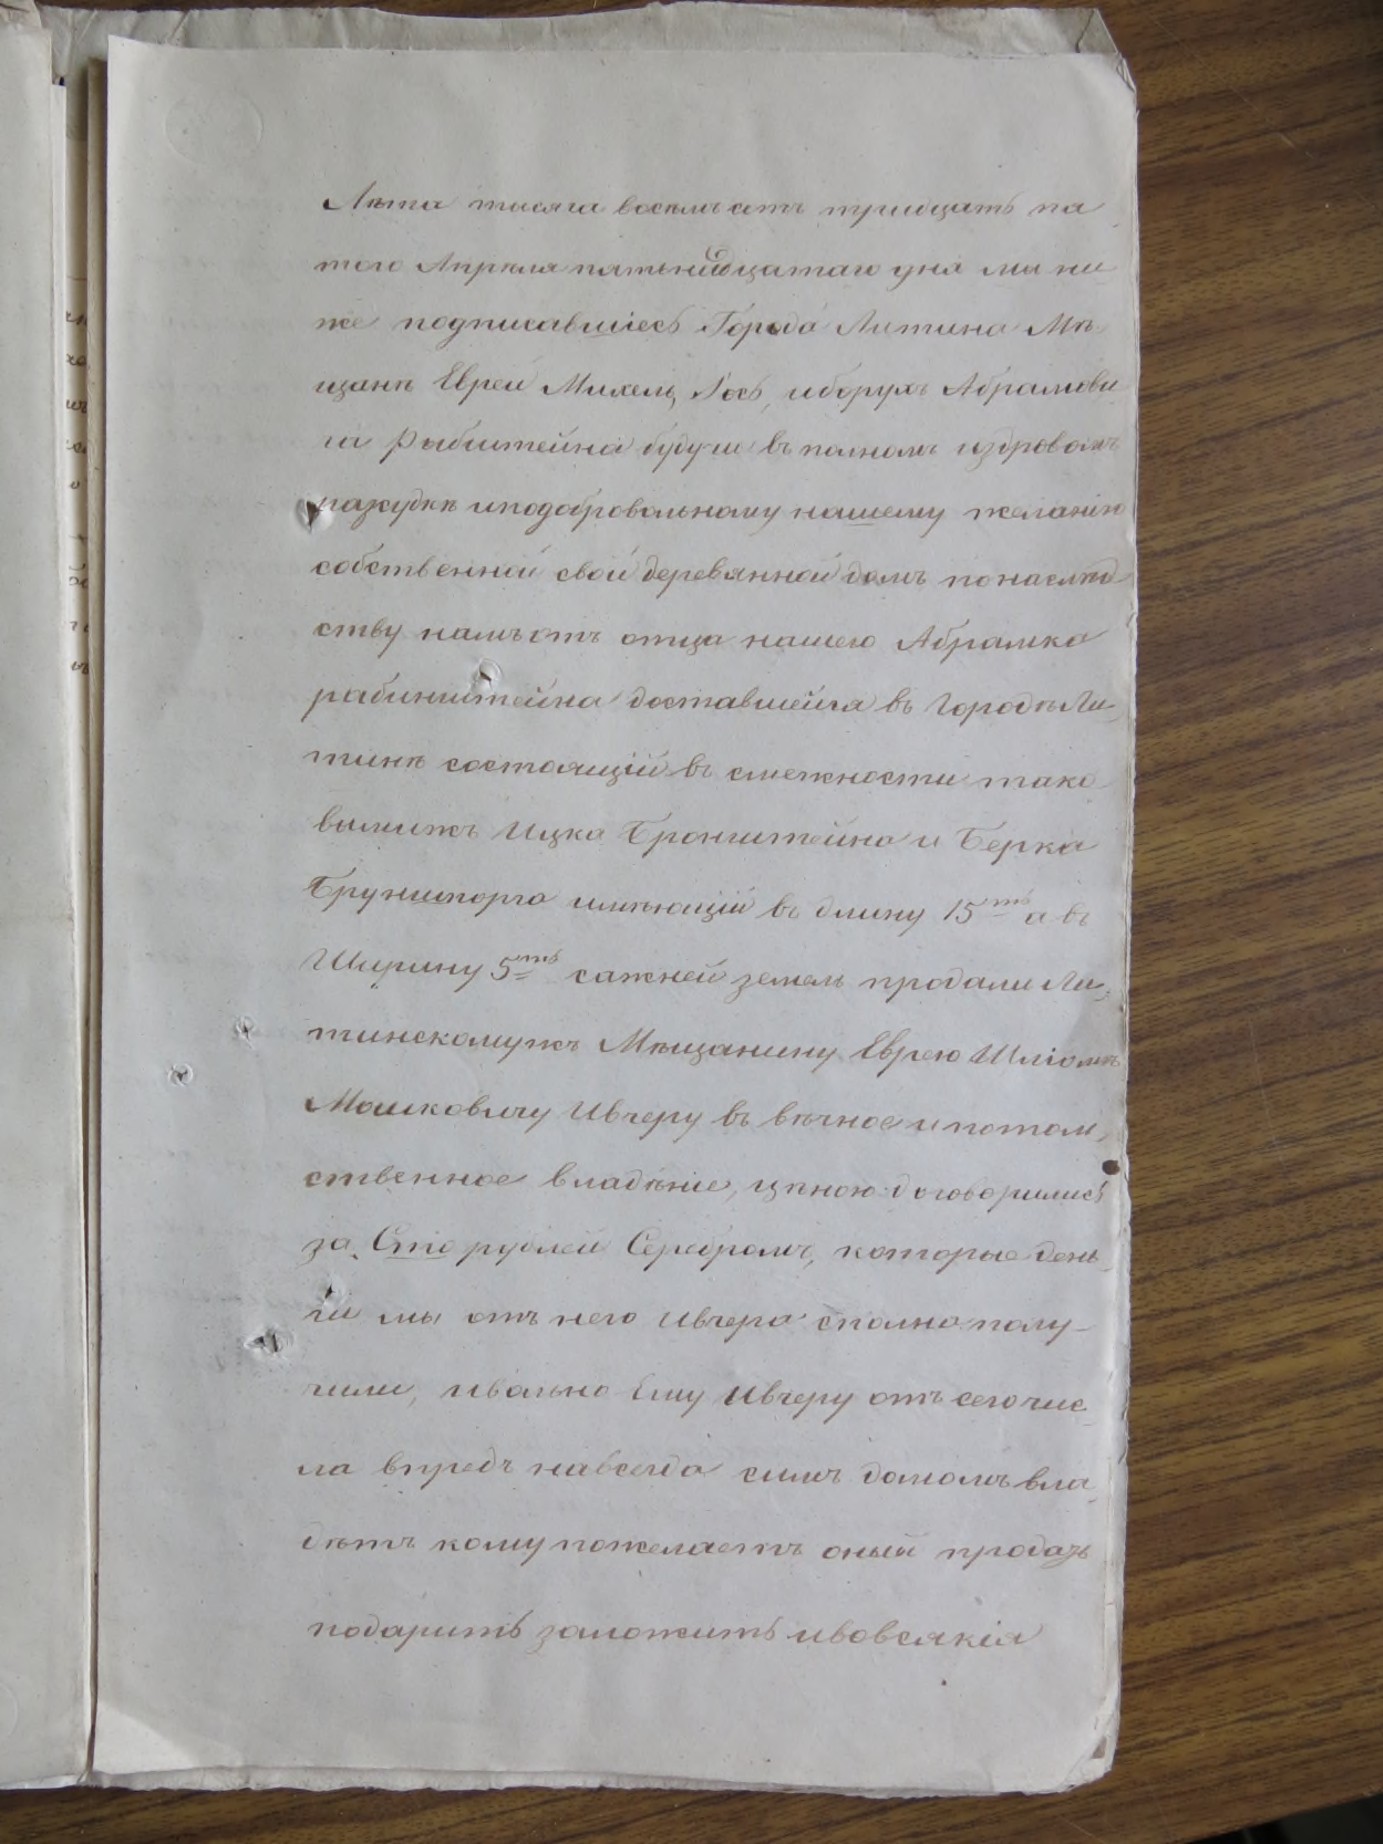 Лѣта тысяга восемъ сотъ тридцать пя
того Апрѣля пятьнадцатаго дня мы ни
же подписавшіесь Города Литина Мѣ
щанѣ Евреи Михель, Іось, иборухъ Абрамови
ча Рабинштейна будучи въ полномъ издровомъ
разсудкѣ иподобровольному нашему желанію
собственной свой деревянной домъ понаслѣд
ству намъ отъ отца нашего Абрамка
рабинштейна доставшейся въ Городѣ Ли
тинѣ состоящій въ смежности тако
вымижъ Ицка Бронштейна и Берка
Брунипорга имѣющій въ длину 15ть а въ
Ширину 5ть сажней земель продали Ли
тинскомужъ Мѣщанину Еврею Шліомѣ
Мошковичу Ивчеру въ вѣчное и потом
ственное владѣніе, цѣною договорились
за Сто рублей Серебромъ, которые день
ги мы отъ него Ивчера сполна полу
чили, ивольно Ему Ивчеру отъ сего чис
ла впредъ навсегда симъ домомъ вла
дѣтъ кому пожелаетъ оный продать
подарить заложить ивовсякія